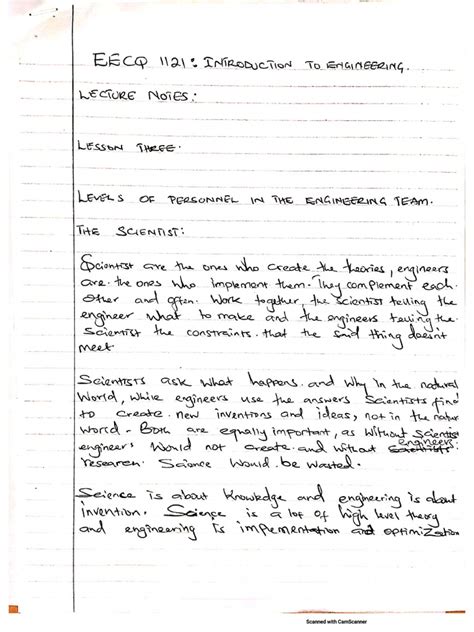 EECQ 1121: INTRODUCTION TO ENGINEERING.
LECTURE NOTES:
LESSON THREE.
LEVELS OF PERSONNEL IN THE ENGINEERING TEAM.
THE SCIENTIST:
Scientist are the ones who create the theories, engineers
are the ones who implement them. They complement each
other and often work together, the scientist telling the
engineer what to make and the engineers telling the
Scientist the constraints that the said thing doesn't
meet
Scientists ask what happens and why in the natural
World, while engineers use the answers Scientists find
to create new inventions and ideas, not in the natur
world. Both are equally important, as without Scientist
engineers would not create and without engineers
research Science would be wasted.
Science is about knowledge and engineering is about
invention. Science is a lot of high level theory
and engineering is implementation and optimization
Scanned with CamScanner